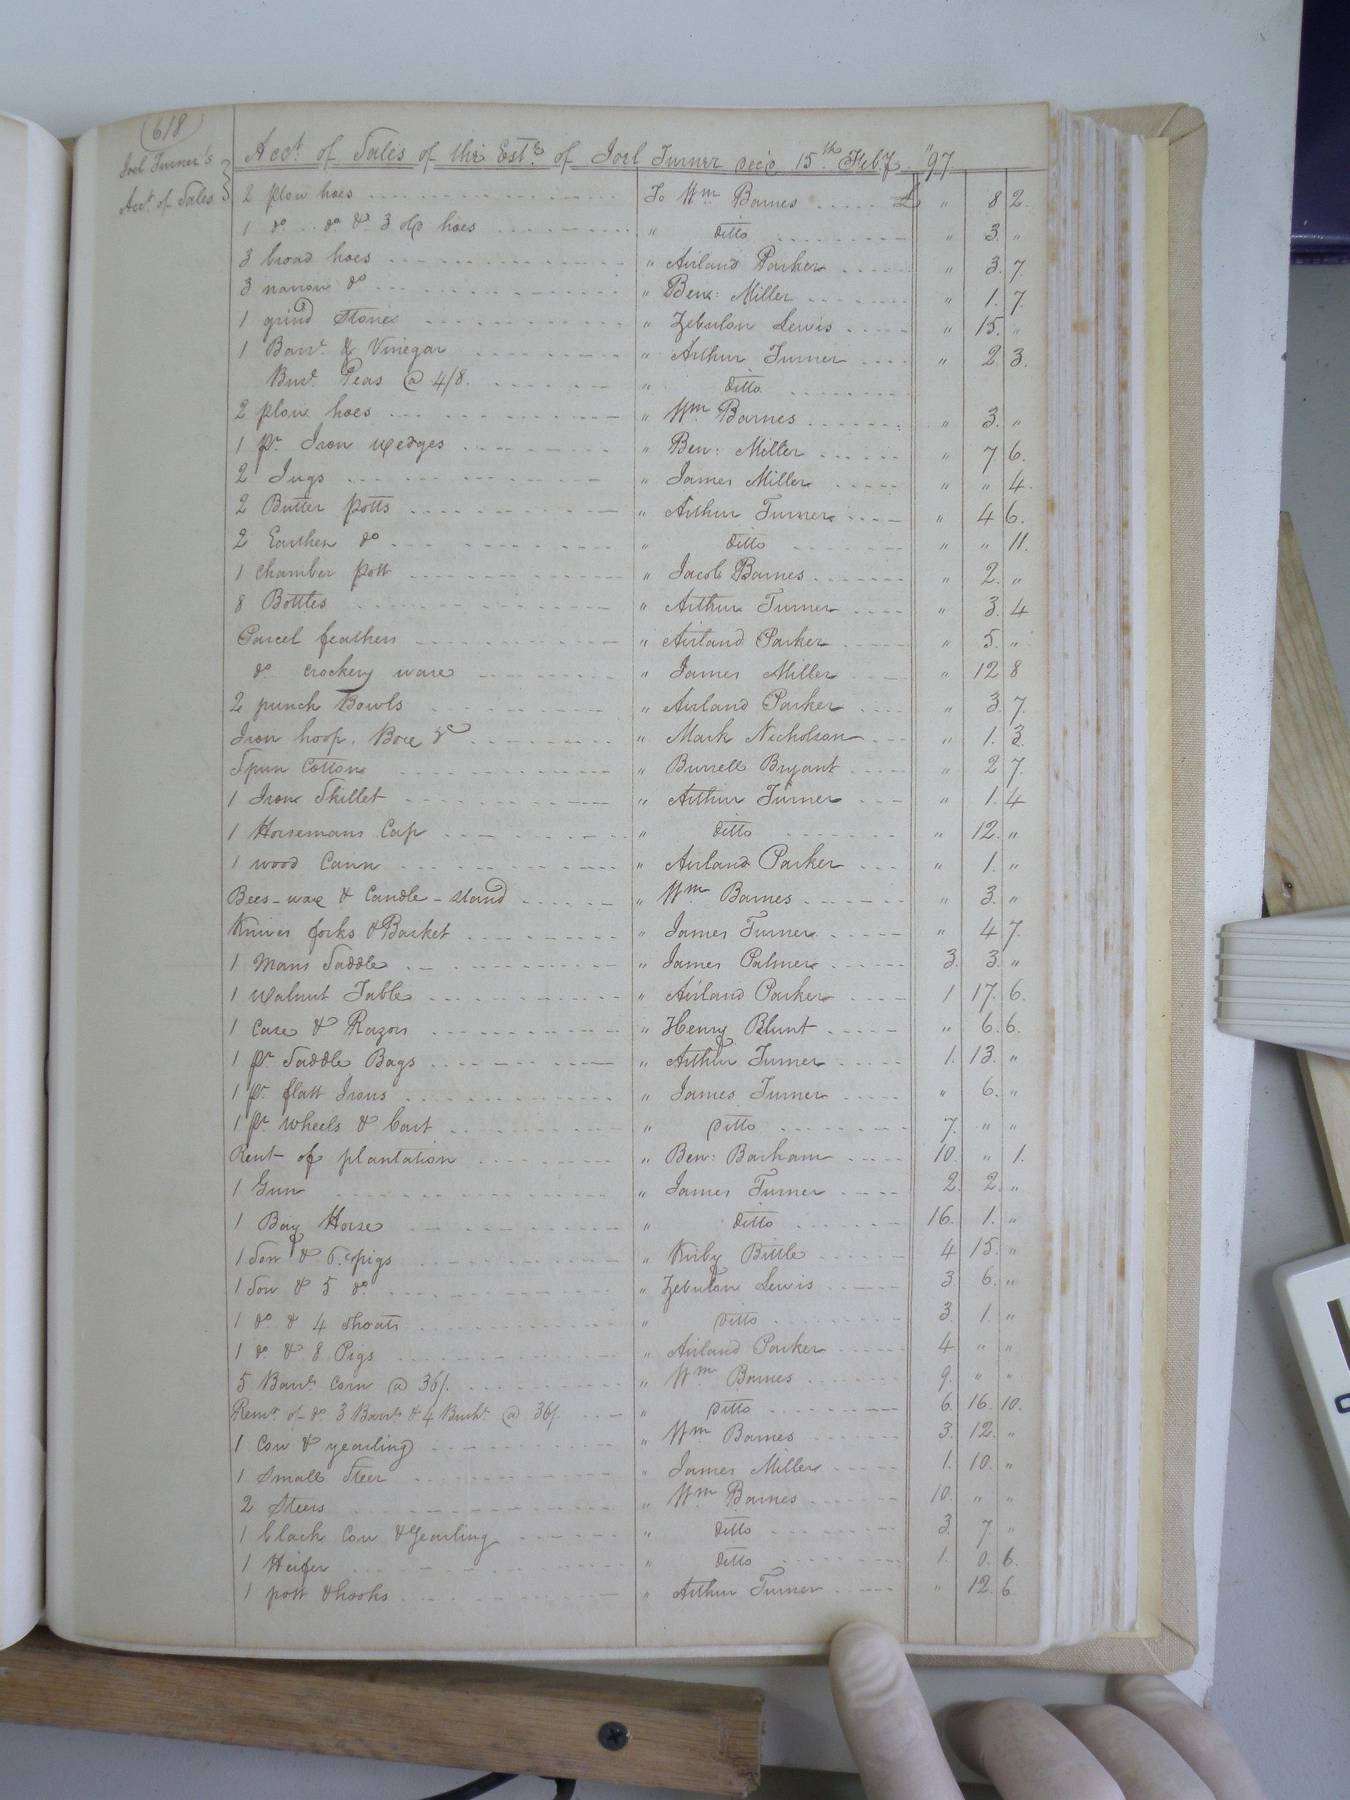 (618)
Joel Turner's
Acct. of Sales
Acct. of Sales of the Este. of Joel Turner dec'd 15th Feby. "97
2 plow hoes To Wm Barnes £ " 8 2
1 do .. do & 3 hoes " ditto " 3. "
3 broad hoes " Airland Parker " 3. 7.
3 narrow do " Benn: Miller " 1. 7.
1 grind Stone " Zebulon Lewis " 15. "
1 Barrl. & Vinegar " Arthur Turner " 2 3.
Peas @ 4/8. " ditto
2 plow hoes " Wm Barnes " 3. "
1 pr. Iron wedges " Ben: Miller " 7 6.
2 Jugs " James Miller " " 4.
2 Butter Potts " Arthur Turner " 4 6.
2 Earthen do " ditto " " 11.
1 chamber pott " Jacob Barnes " 2. "
8 Bottles " Arthur Turner " 3. 4
Parcel feathers " Airland Parker " 5. "
do crockery ware " James Miller " 12 8
2 punch Bowls " Airland Parker " 3. 7.
Iron hoop, Box &c " Mark Nicholson " 1. 3.
Spun Cotton " Burrell Bryant " 2 7.
1 Iron Skillet " Arthur Turner " 1. 4
1 Horsemans Cap " ditto " 12. "
1 wood Cann " Airland Parker " 1. "
Bees-wax & Candle-stand " Wm Barnes " 3. "
Knives forks & Basket " James Turner " 4 7.
1 Mans Saddle " James Palmer 3. 3. "
1 Walnut Table " Airland Parker 1 17. 6.
1 Case & Razors " Henry Blunt " 6. 6.
1 pr. Saddle Bags " Arthur Turner 1. 13. "
1 pr. flatt Irons " James Turner " 6. "
1 pr. wheels & Cart " ditto 7. " "
Rent of plantation " Ben: Barham 10. " 1.
1 Gun " James Turner 2. 2. "
1 Bay Horse " ditto 16. 1. "
1 Sow & 6 pigs " Kirby Bittle 4 15. "
1 Sow & 5 do " Zebulon Lewis 3 6. "
1 do & 4 Shoats " ditto 3. 1. "
1 do & 8 Pigs " Airland Parker 4 " "
5 Barrls. Corn @ 36/. " Wm Barnes 9. " "
Remr. of do 3 Barrls. & 4 Bushl. @ 36/. " ditto 6. 16. 10.
1 Cow & yearling " Wm Barnes 3. 12. "
1 Small Steer " James Miller 1. 10. "
2 Steers " Wm Barnes 10. " "
1 black Cow & Yearling " ditto 3. 7. "
1 Heifer " ditto 1. 0. 6.
1 pott & hooks " Arthur Turner " 12. 6.